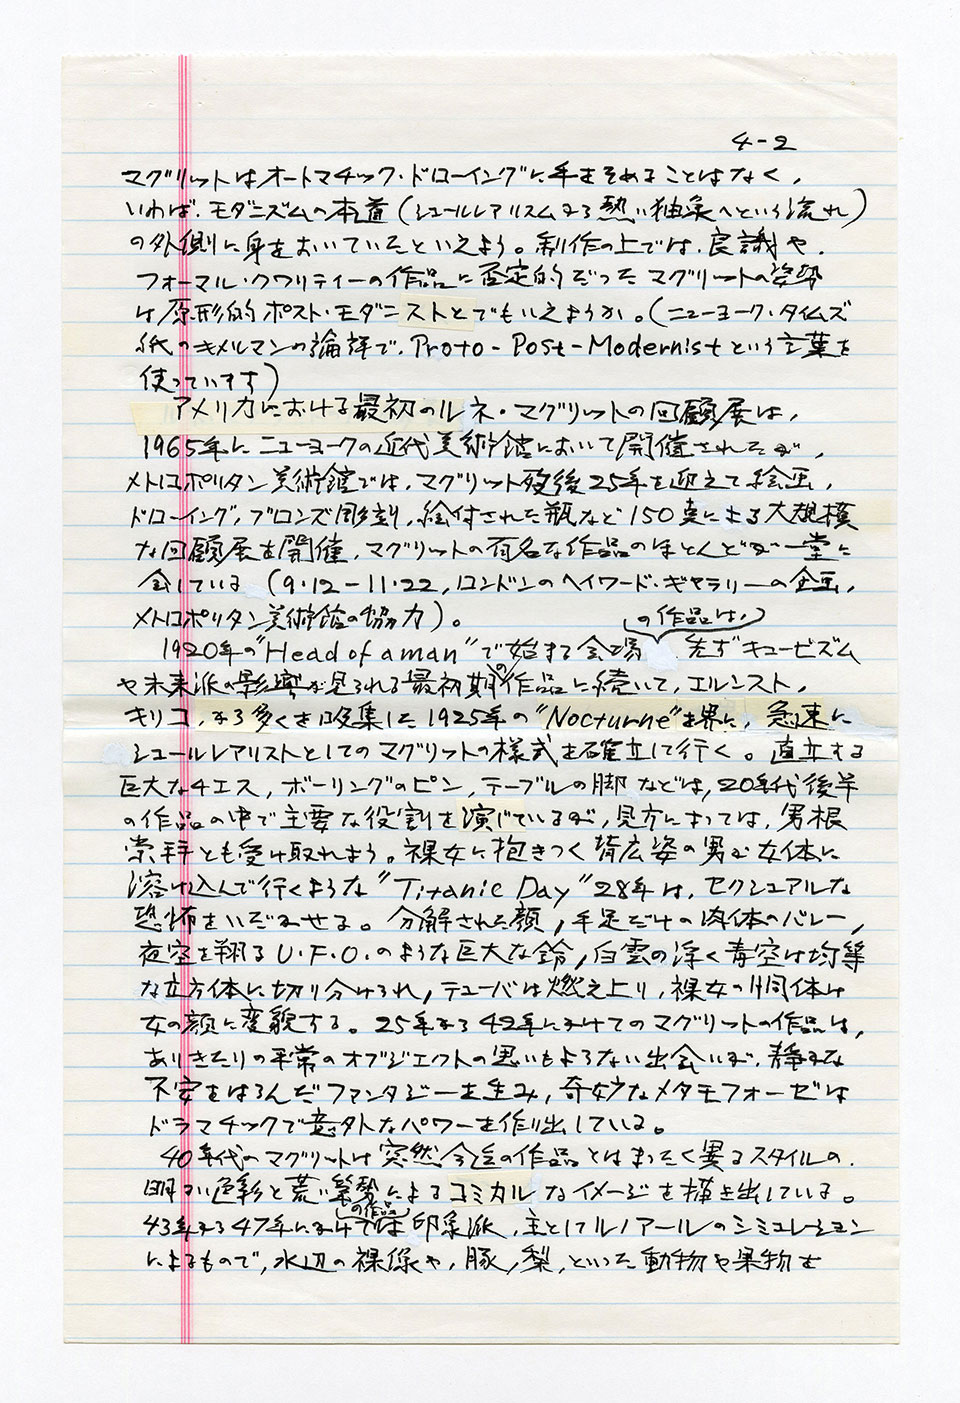 4-2
マグリットはオートマチック・ドローイングに手をそめることはなく、
いわば、モダニズムの本道(シュールレアリスムから熱い抽象へという流れ)
の外側に身をおいていたといえよう。制作の上では、良識や、
フォーマル・クワリティーの作品に否定的だったマグリットの姿勢
は原形的ポスト・モダニストとでもいえようか。(ニューヨーク・タイムズ
紙のキメルマンの論評で、Proto-Post-Modernistという言葉を
使っています)
アメリカにおける最初のルネ・マグリットの回顧展は、
1965年にニューヨークの近代美術館において開催されたが、
メトロポリタン美術館では、マグリット歿後25年を迎えて絵画、
ドローイング、ブロンズ彫刻、絵付された瓶など150点による大規模
な回顧展を開催、マグリットの有名な作品のほとんどが一堂に
会している(9・12-11・22、ロンドンのヘイワード・ギャラリーの企画、
メトロポリタン美術館の協力)。
の作品は、
1920年の"Head of a man"で始まる会場 先ずキュービズム
や未来派の影響が見られる最初期の作品に続いて、エルンスト、
キリコ、から多くを収集した1925年の"Nocturne"を界に、急速に
シュールレアリストとしてのマグリットの様式を確立して行く。直立する
巨大なチエス、ボーリングのピン、テーブルの脚などは、20年代後半
の作品の中で主要な役割を演じているが、見方によっては、男根
崇拝とも受け取れよう。裸女に抱きつく背広姿の男が女体に
溶け込んで行くような"Titanic Day"28年は、セクシュアルな
恐怖をいだかせる。分解された顔、手足だけの肉体のバレー、
夜空を翔るU.F.O.のような巨大な鈴、白雲の浮く青空は均等
な立方体に切り分けられ、テューバは燃え上り、裸女の胴体は
女の顔に変貌する。25年から42年にかけてのマグリットの作品は、
ありきたりの平常のオブジェクトの思いもよらない出会いが、静かな
不安をはらんだファンタジーを生み、奇妙なメタモフォーゼは
ドラマチックで意外なパワーを作り出している。
40年代のマグリットは突然今迄の作品とはまったく異るスタイルの、
明るい色彩と荒い筆勢によるコミカルなイメージを描き出している。
の作品
43年から47年にかけては印象派、主としてルノアールのシミュレーション
によるもので、水辺の裸像や、豚、梨、といった動物や果物を